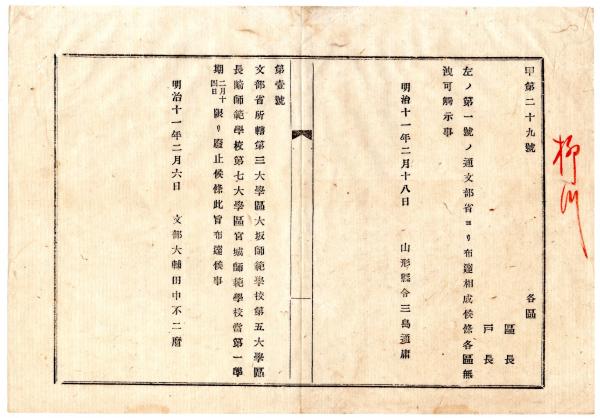 柳川
甲第二十九號
各區
區長
戸長
左ノ第一號ノ通文部省ヨリ布達相成候條各區無
洩可觸示事
明治十一年二月十八日　山形縣令三島通庸
第壹號
文部省所轄第三大學區大坂師範學校第五大學區
長崎師範學校第七大學區宮城師範學校當第一學
期二月十四日限リ廢止候條此旨布達候事
明治十一年二月六日　文部大輔田中不二麿